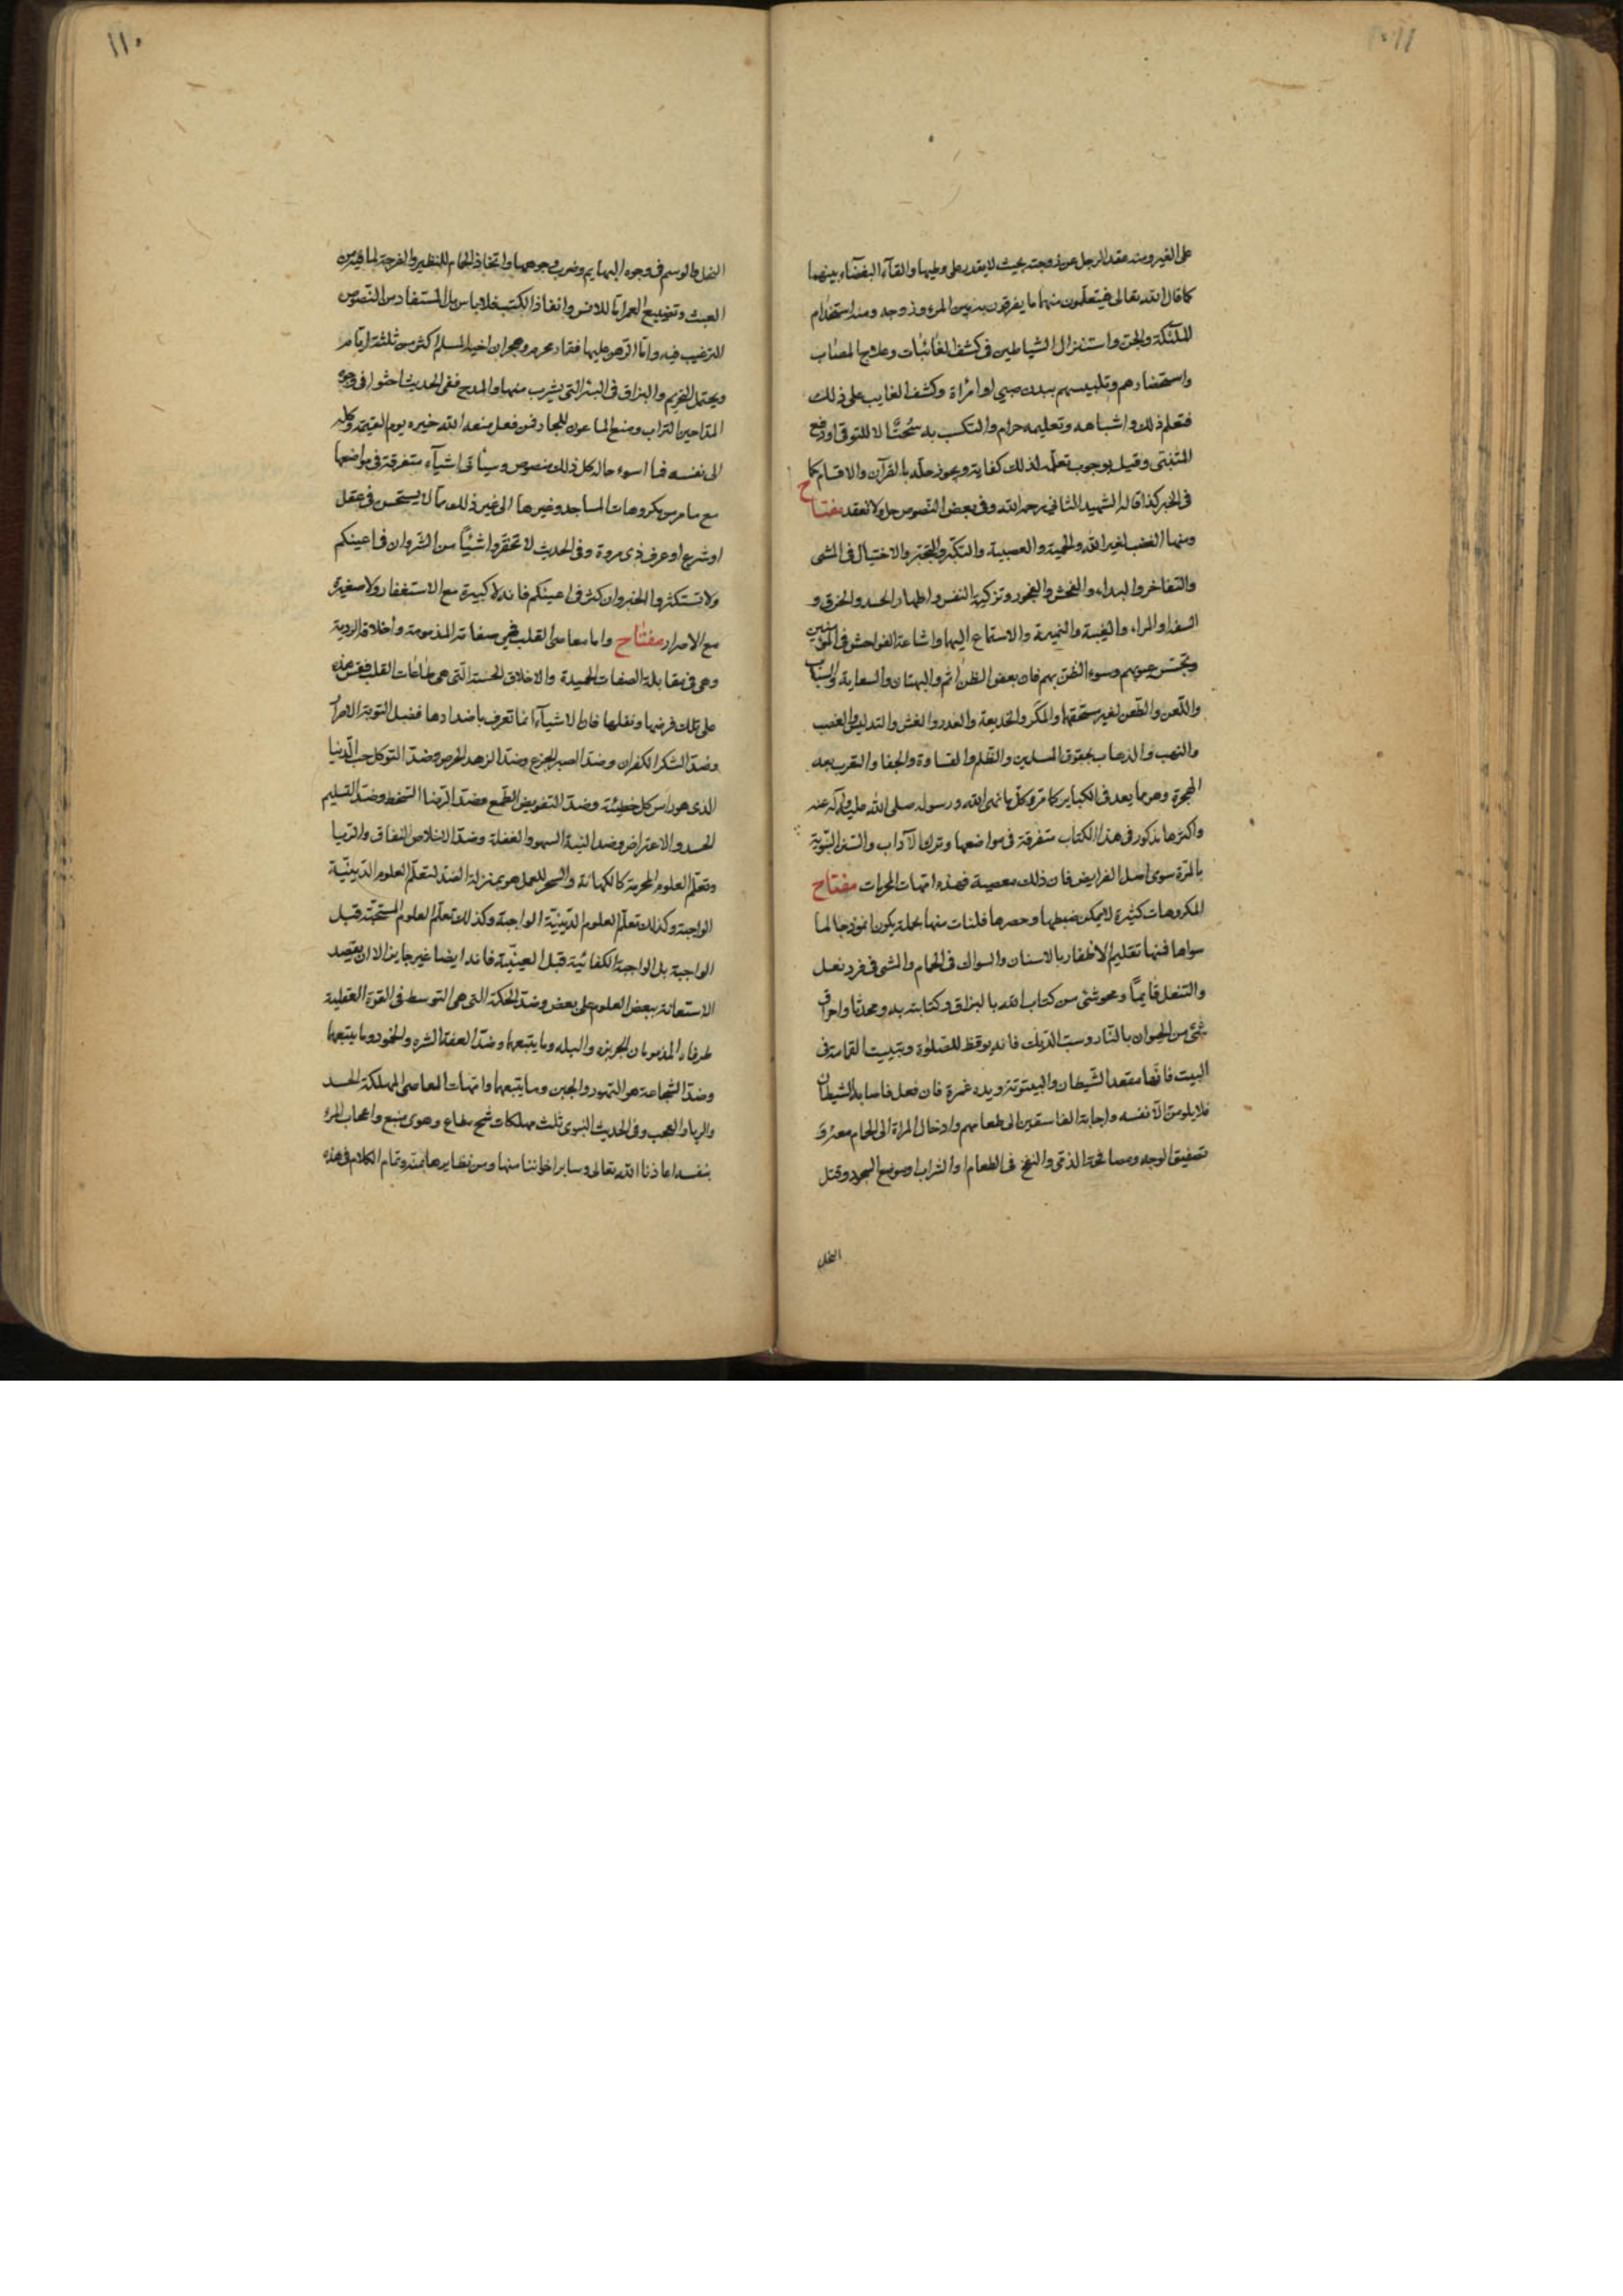 على الغير ومنه عقد الرجل عن زوجته بحيث لا يقدر على وطيها والقاء البغضاء بينهما
كما قال الله تعالى فيتعلمون منهما ما يفرقون به بين المرء وزوجه ومنه استخدام
الملئكة والجن واستنزال الشياطين فى كشف الغائبات وعلاج المصاب
واستحضارهم وتلبيسهم ببدن صبي او امرأة وكشف الغايب على ذلك
فتعلم ذلك واشباهه وتعليمه حرام والتكسب به سُحتٌ الا للتوقى او دفع
المتنبّى وقيل بوجوب تعلّمه لذلك كفاية ويجوز حلّه بالقرآن والاقسام كما
فى الخبر كذا قاله الشهيد الثانى رحمه الله وفى بعض النصوص حل ولا تعقد مفتاح
ومنها الغضب لغير الله والحمية والعصبية والتكبّر والتبختر والاختيال فى المشى
والتفاخر والبذاء والفحش والفجور وتزكية النفس واظهار الحسد والخرق و
السفه او المراء والغيبة والنميمة والاستماع اليها واشاعة الفواحش فى المؤمنين
وتجسّس عيوبهم وسوء الظنّ بهم فان بعض الظن اثم والبهتان والسعاية والسباب
واللّعن والطّعن لغير مستحقها والمكر والخديعة والغدر والغش والتدليس والغصب
والنهب والذهاب بحقوق المسلمين والظلم والقساوة والجفا والتعرب بعد
الهجرة وهو ما يعد فى الكباير كما مرّ وكلّ ما نهى الله ورسوله صلى الله عليه وآله عنه
واكثرها مذكور فى هذا الكتاب متفرقة فى مواضعها وترك الآداب والسنن النّبويّة
بالمرّة سوى اصل الفرايض فان ذلك معصية فهذه امّهات المحرمات مفتاح
المكروهات كثيرة لا يمكن ضبطها وحصرها فلنات منها بجملة يكون انموذجا لما
سواها فمنها تقليم الاظفار بالاسنان والسواك فى الحمام والمشى فى فرد نعل
والتنعل قايمًا ومحو شئ من كتاب الله بالبزاق وكتابته به ومحدثا واحراق
شئ من الحيوان بالنار وسبّ الدّيك فانه يوقظ للصلوة وتبييت القمامة فى
البيت فانها مقعد الشيطان والبيتوتة ويده غمرة فان فعل فاصابه الشيطان
فلا يلومن الّا نفسه واجابة الفاسقين الى طعامهم وادخال المراة الى الحمام معرّوَ
تصفيق الوجه ومصافحة الذمّى والنفخ فى الطعام او الشراب وموضع السجود وقتل
النحل
١١٠
النحل والوسم فى وجوه البهايم وضرب وجوهها واتخاذ الحمام للنظير والفرجة لما فيه من
العبث وتضييع العمر امّا للانس وانفاذ الكتب فلا باس بل المستفاد من النّصوص
الترغيب فيه وامّا الرّهن عليها فقمار محرم وهجران اخيه المسلم اكثر من ثلثة ايّام
ويحتمل التحريم والبزاق فى البئر التى يشرب منها والمدح ففى الحديث احثوا فى وجوه
المدّاحين التراب ومنع الماعون للجار فمن فعل منعه الله خيره يوم القيمة وكله
الى نفسه فما اسوء حاله كل ذلك منصوص وسياتى اشياء متفرقة فى مواضعها
مع ما مر من مكروهات المساجد وغيرها الى غير ذلك مما لا يستحسن فى عقل
او شرع او عرف ذى مروة وفى الحديث لا تحقّروا شيئًا من الشّر وان فى اعينكم
ولا تستكثروا الخير وان كثر فى اعينكم فانه لا كبيرة مع الاستغفار ولا صغيرة
مع الاصرار مفتاح واما معاصى القلب فهى صفاته المذمومة واخلاقه الرديّة
وهى فى مقابلة الصفات الحميدة والاخلاق الحسنة الّتى هى طاعات القلب فقس هذه
على تلك فرضها ونفلها فان الاشياء انما تعرف باضدادها فضد التوبة الاصرار
وضدّ الشكر الكفران وضدّ الصبر الجزع وضدّ الزهد الحرص وضدّ التوكل حب الدّنيا
الذى هو راس كل خطيئة وضدّ التفويض الطّمع وضدّ الرّضا السّخط وضدّ التسليم
الحسد والاعتراض وضد النية السهو والغفلة وضدّ الاخلاص النفاق والريا
وتعلّم العلوم المحرمة كالكهانة والسحر للعمل هو بمنزلة الضدّ لتعلّم العلوم الدّينيّة
الواجبة وكذلك تعلّم العلوم الدّينيّة الواجبة وكذلك تعلّم العلوم المستحبّة قبل
الواجبة بل الواجبة الكفائية قبل العينيّة فانه ايضا غير جايز الا ان يقصد
الاستعانة ببعض العلوم على بعض وضدّ الحكمة التى هى التوسط فى القوّة العقلية
طرفاه المذمومان الجربزه والبله وما يتبعهما وضدّ العفّة الشره والخمود وما يتبعهما
وضدّ الشجاعة هو التهور والجبن وما يتبعهما وامّهات المعاصى المهلكة الحسد
والريا والعجب وفى الحديث النبوى ثلث مهلكات شح مطاع وهوى متبع واعجاب المرء
بنفسه اعاذنا الله تعالى وساير اخواننا منها ومن نظايرها بمنّه وتمام الكلام فى هذه